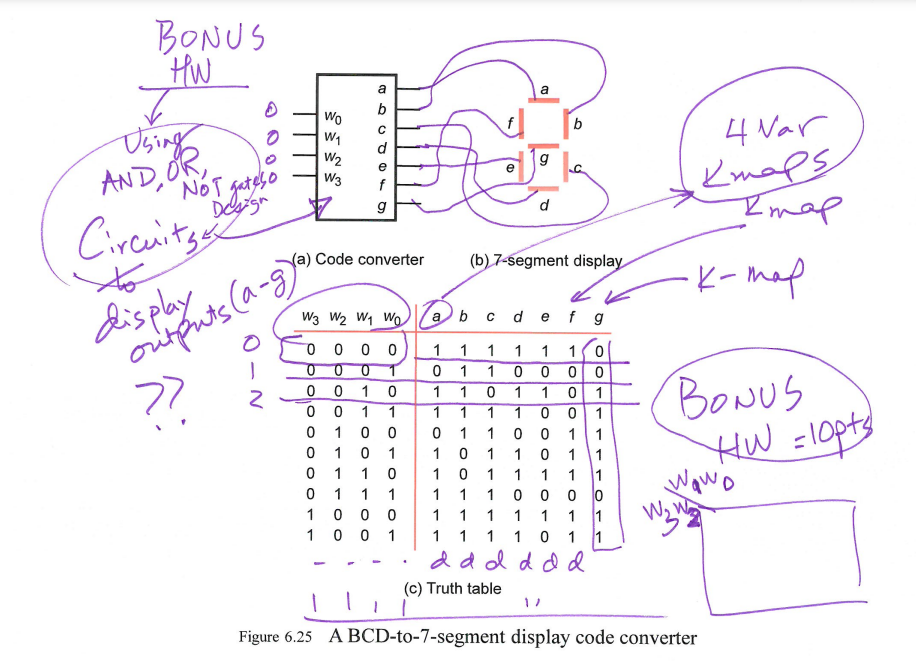 BONUS
HW
Using
AND, OR,
NOT gates
Design
Circuits
to
display
outputs (a-g)
??
0
0
0
0
w0
w1
w2
w3
a
b
c
d
e
f
g
a
f
b
g
e
c
d
4 Var
Kmaps
Kmap
K-map
(a) Code converter
(b) 7-segment display
w3 w2 w1 w0 a b c d e f g
0 0 0 0 0 1 1 1 1 1 1 0
1 0 0 0 1 0 1 1 0 0 0 0
2 0 0 1 0 1 1 0 1 1 0 1
0 0 1 1 1 1 1 1 0 0 1
0 1 0 0 0 1 1 0 0 1 1
0 1 0 1 1 0 1 1 0 1 1
0 1 1 0 1 0 1 1 1 1 1
0 1 1 1 1 1 1 0 0 0 0
1 0 0 0 1 1 1 1 1 1 1
1 0 0 1 1 1 1 1 0 1 1
- - - - d d d d d d
(c) Truth table
1 1 1 1 "
BONUS
HW = 10pts
w1w0
w3w2
Figure 6.25 A BCD-to-7-segment display code converter